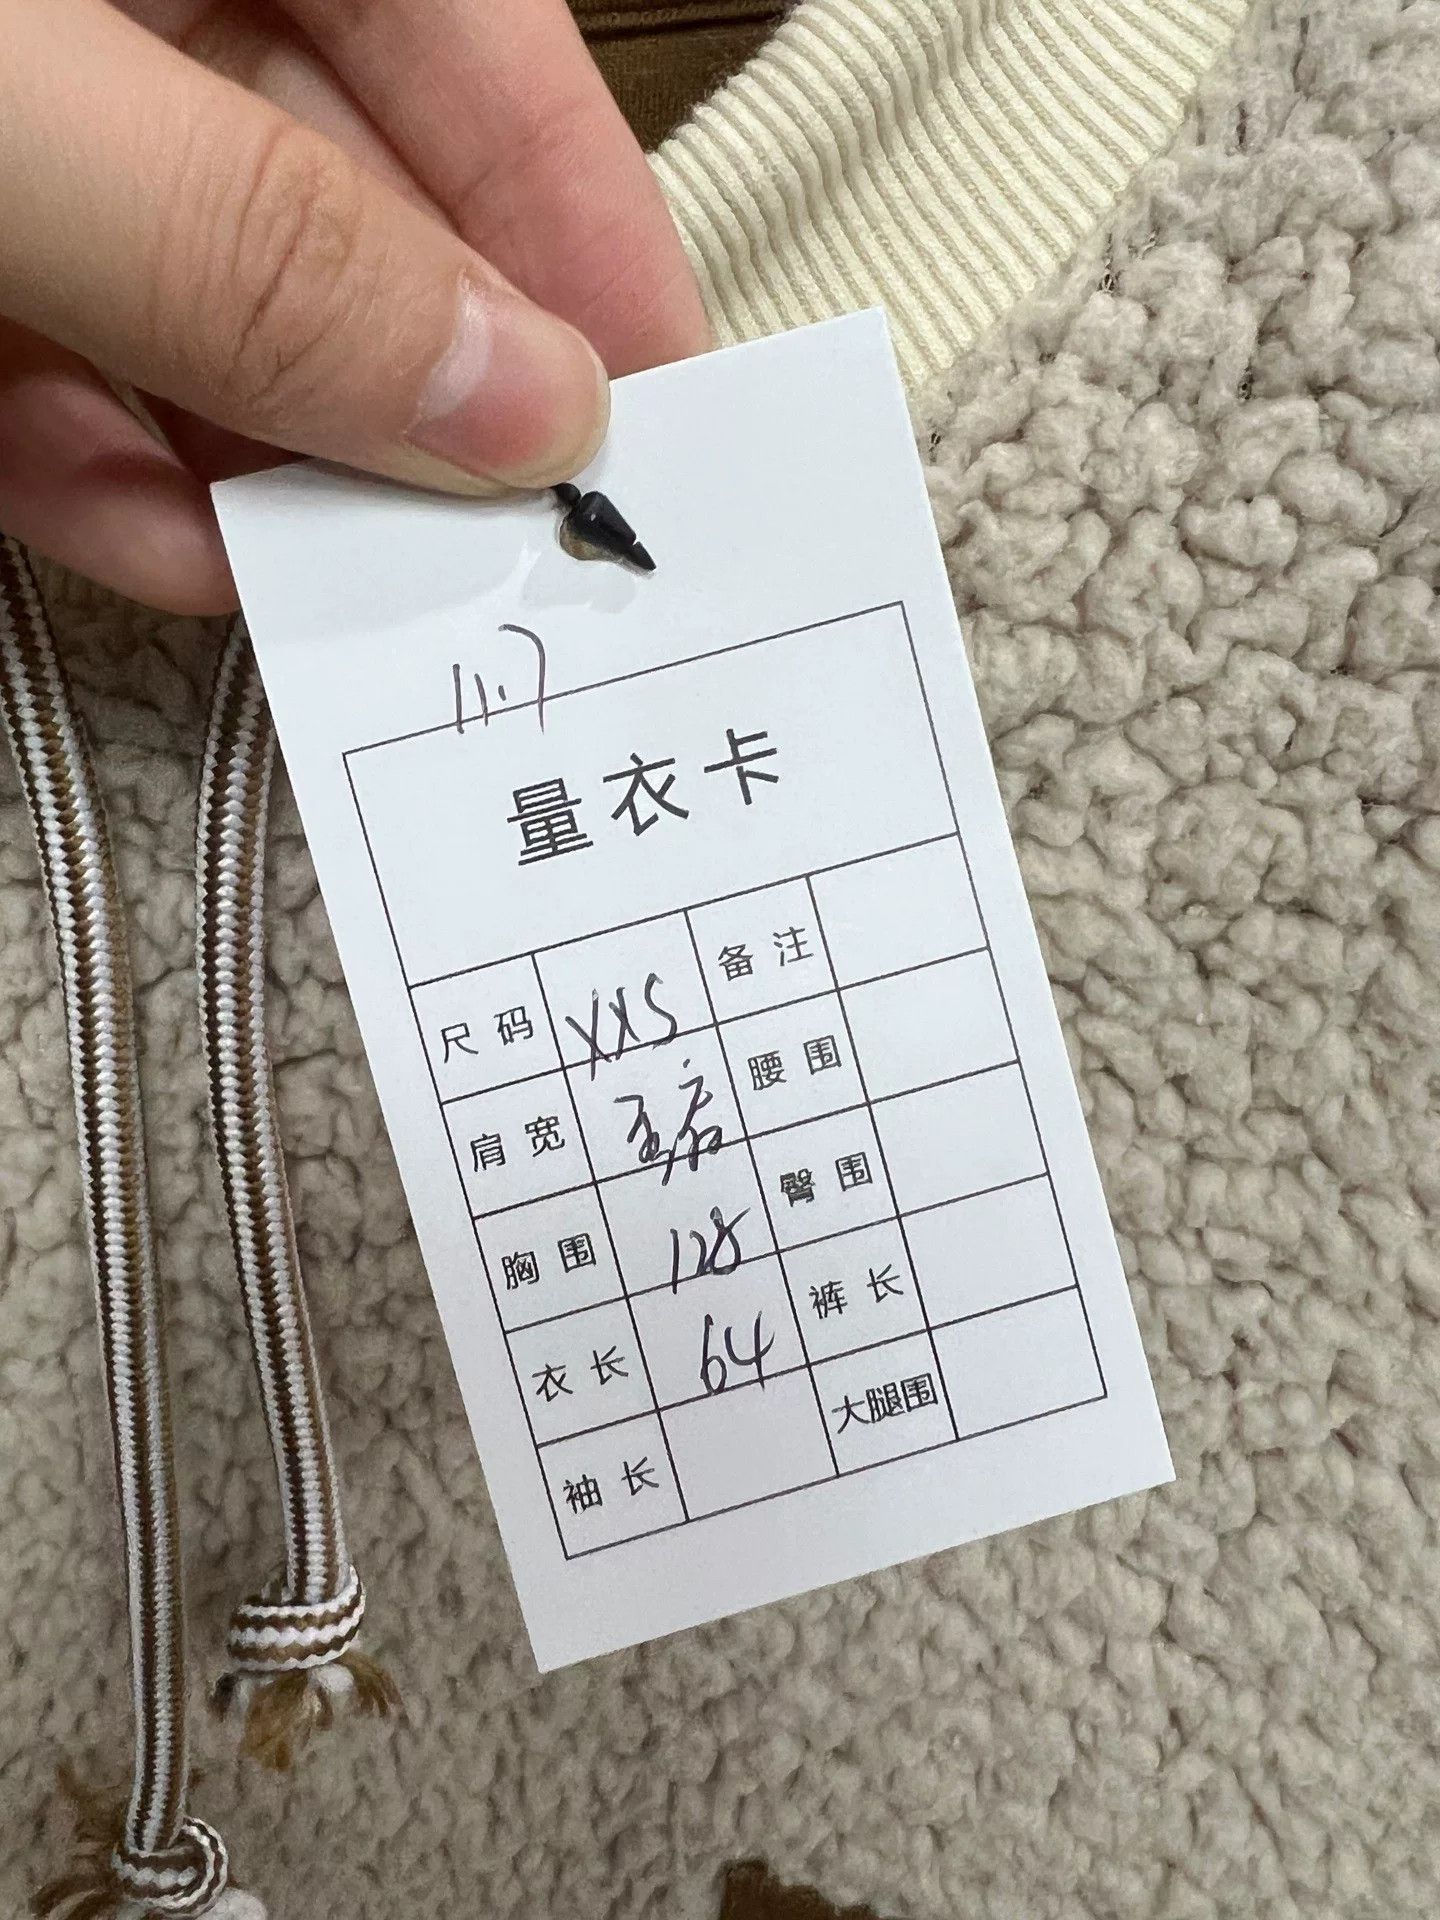 11.7
量衣卡
尺码 XXS 备注
肩宽 腰围
胸围 128 臀围
衣长 64 裤长
袖长 大腿围